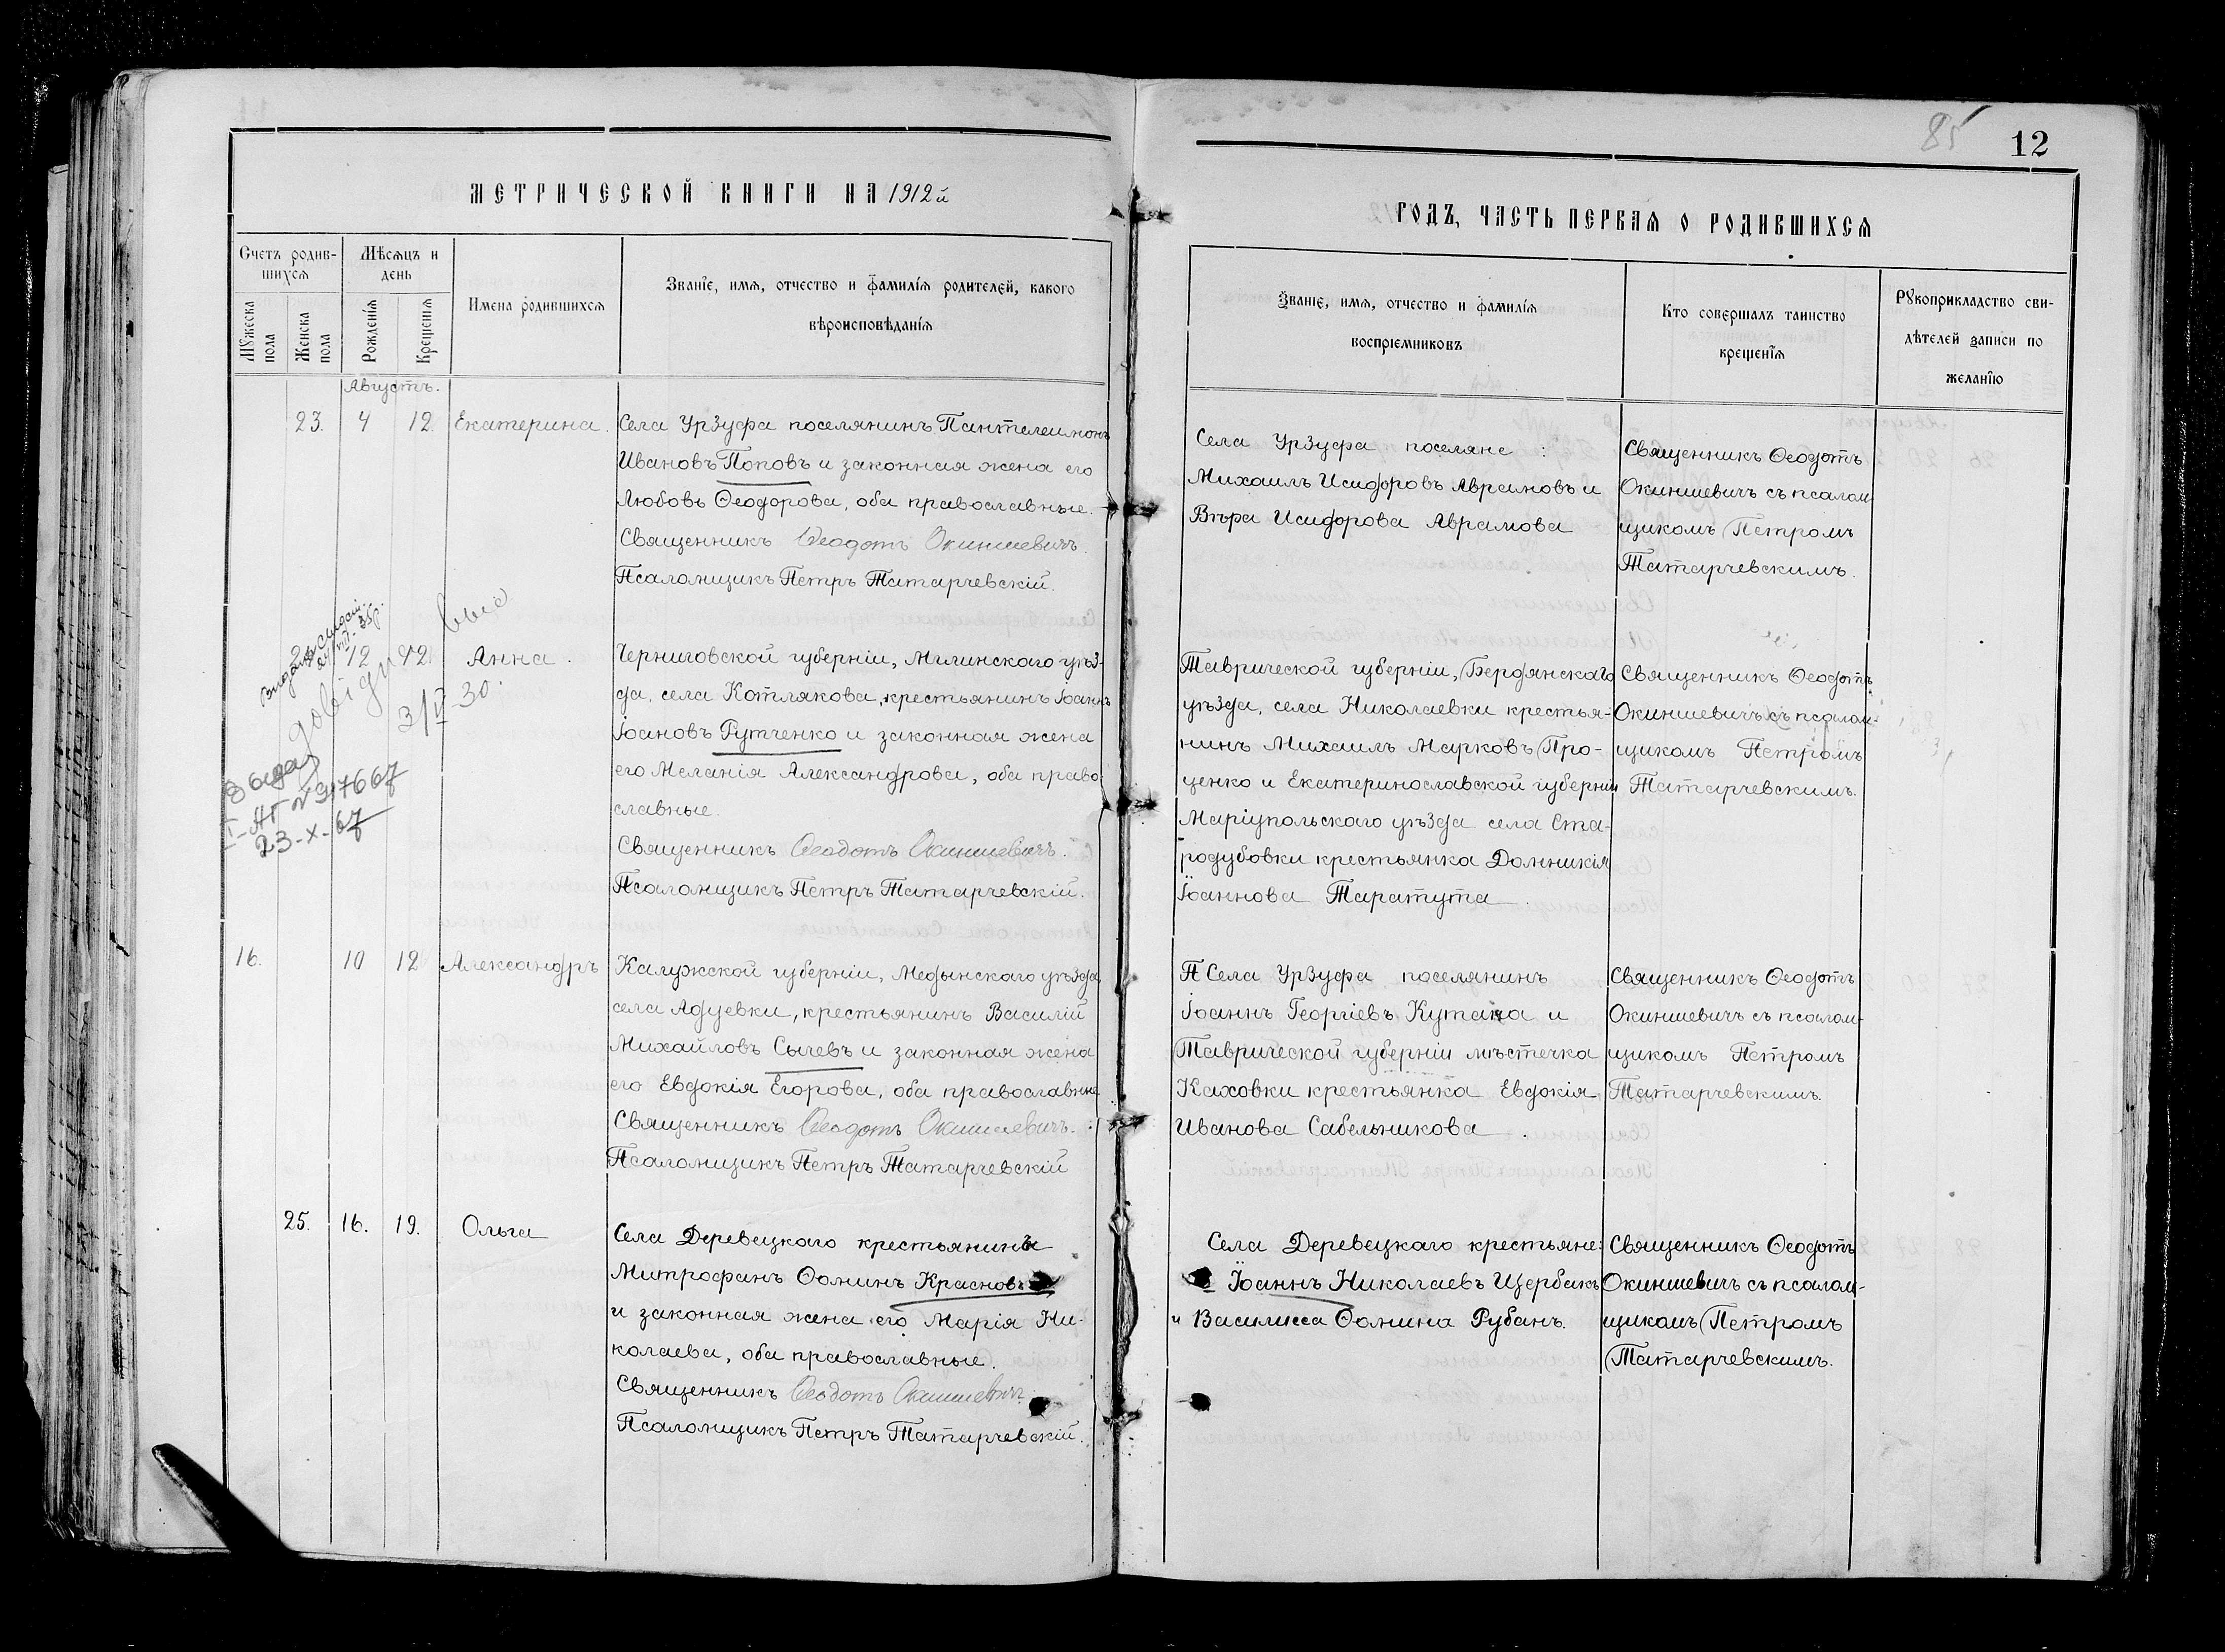 85 12
МЕТРИЧЕСКОЙ КНИГИ НА 1912й
ГОДЪ, ЧАСТЬ ПЕРВАЯ О РОДИВШИХСЯ
Счетъ родив-
шихся
Мѣсяцъ и
день
Мужеска
пола
Женска
пола
Рожденія
Крещенія
Имена родившихся
Званіе, имя, отчество и фамилія родителей, какого
вѣроисповѣданія
Званіе, имя, отчество и фамилія
воспріемниковъ
Кто совершалъ таинство
крещенія
Рукоприкладство сви-
дѣтелей записи по
желанію
Августъ.
23. 4 12. Екатерина.
Села Урзуфа поселянинъ Пантелеимонъ
Ивановъ Поповъ и законная жена его
Любовь Ѳеодорова, оба православные.
Священникъ Ѳеодотъ Окиншевичъ.
Псаломщикъ Петръ Татарчевскій.
Села Урзуфа поселяне:
Михаилъ Исидоровъ Аврамовъ и
Вѣра Исидорова Аврамова
Священникъ Ѳеодотъ
Окиншевичъ съ псалом
щикомъ Петромъ
Татарчевскимъ.
12 12 Анна.
3/V-30.
I-АГ №317667
23-X-67
Черниговской губерніи, Мглинскаго уѣз-
да, села Котлякова, крестьянинъ Іоаннъ
Іоановъ Рутченко и законная жена
его Меланія Александрова, оба право-
славные.
Священникъ Ѳеодотъ Окиншевичъ.
Псаломщикъ Петръ Татарчевскій.
Таврической губерніи, Бердянскаго
уѣзда, села Николаевки крестья-
нинъ Михаилъ Марковъ Про-
ценко и Екатеринославской губерніи
Маріупольскаго уѣзда села Ста-
родубовки крестьянка Домникія
Іоаннова Таратута.
Священникъ Ѳеодотъ
Окиншевичъ съ псалом-
щикомъ Петромъ
Татарчевскимъ.
16. 10 12 Александръ
Калужской губерніи, Медынскаго уѣзда,
села Адуевки, крестьянинъ Василій
Михайловъ Сычевъ и законная жена
его Евдокія Егорова, оба православные
Священникъ Ѳеодотъ Окиншевичъ.
Псаломщикъ Петръ Татарчевскій
П Села Урзуфа поселянинъ
Іоаннъ Георгіевъ Кутана и
Таврической губерніи мѣстечка
Каховки крестьянка Евдокія
Иванова Сабельникова.
Священникъ Ѳеодотъ
Окиншевичъ съ псалом-
щикомъ Петромъ
Татарчевскимъ.
25. 16. 19. Ольга
Села Деревецкаго крестьянинъ
Митрофанъ Ѳоминъ Красновъ
и законная жена его Марія Ни-
колаева, оба православные.
Священникъ Ѳеодотъ Окиншевичъ.
Псаломщикъ Петръ Татарчевскій.
Села Деревецкаго крестьяне:
Іоаннъ Николаевъ Щербакъ
и Василисса Ѳомина Рубанъ.
Священникъ Ѳеодотъ
Окиншевичъ съ псалом-
щикомъ Петромъ
Татарчевскимъ.